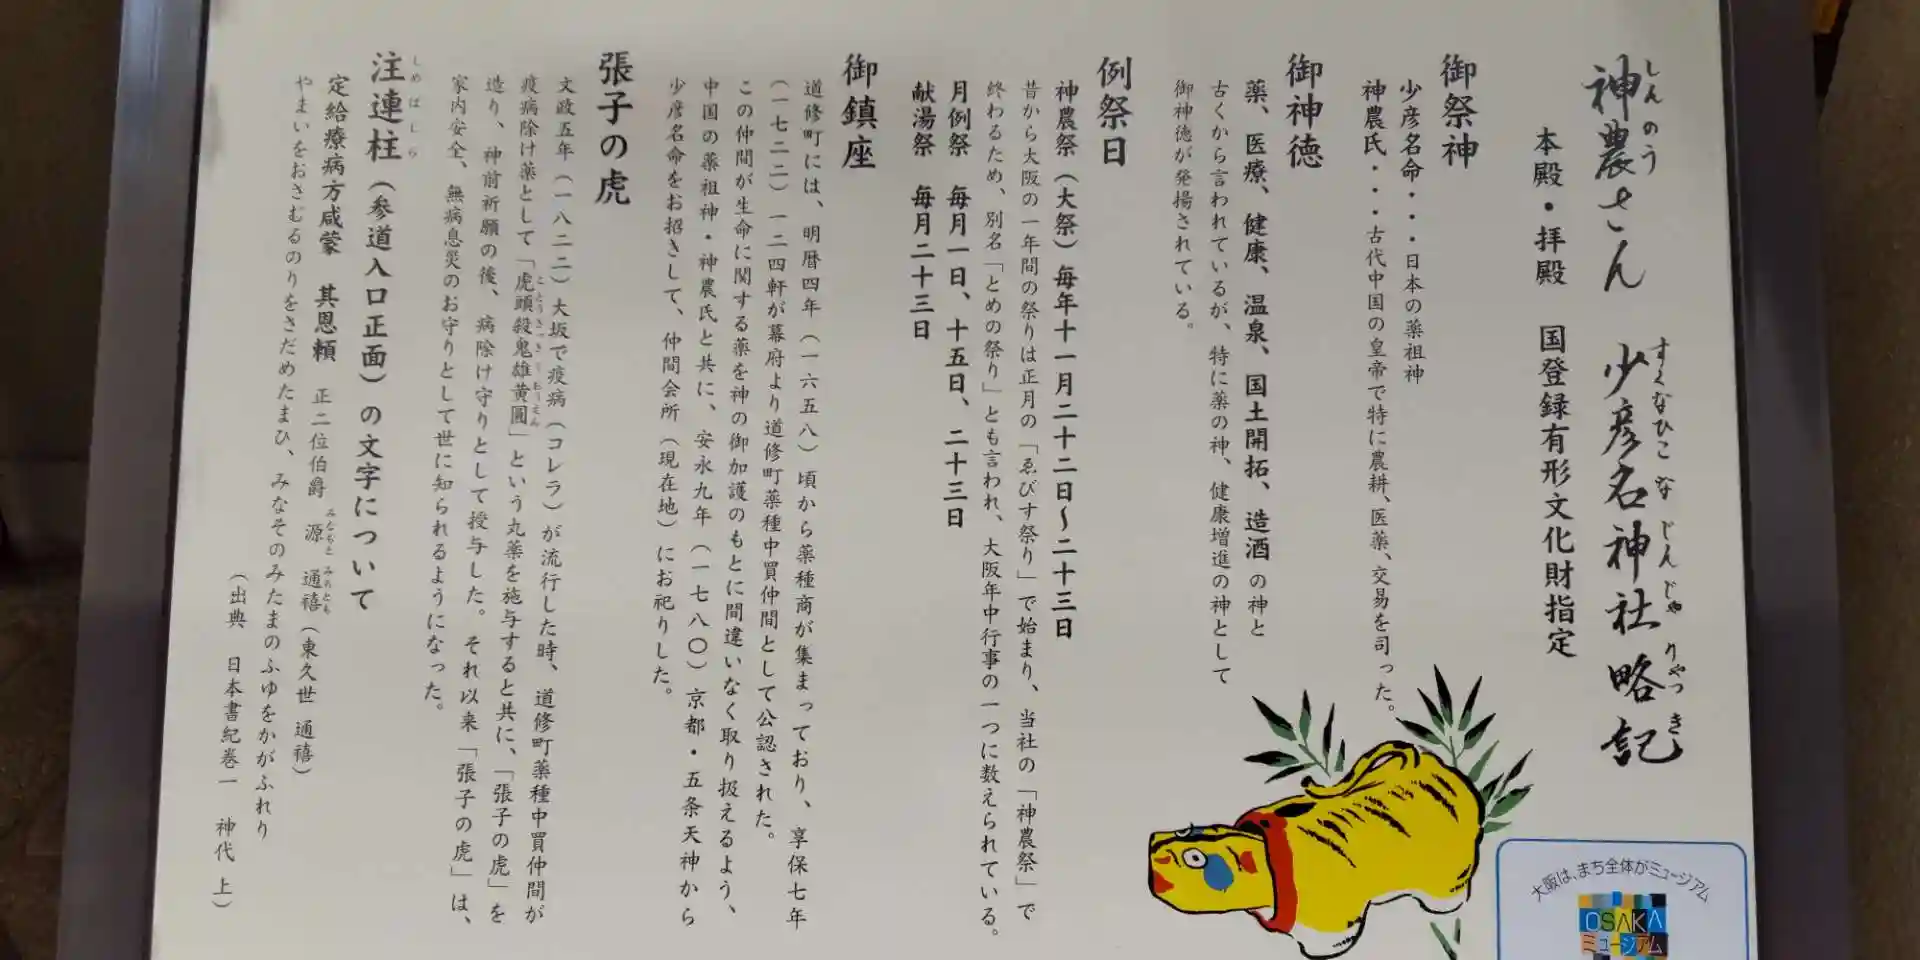 神農さん 少彦名神社略記
しんのう すくなひこな じんじゃ りゃっき
本殿・拝殿 国登録有形文化財指定
御祭神
少彦名命・・・日本の薬祖神
神農氏・・・古代中国の皇帝で特に農耕、医薬、交易を司った。
御神徳
薬、医療、健康、温泉、国土開拓、造酒の神と
古くから言われているが、特に薬の神、健康増進の神として
御神徳が発揚されている。
例祭日
神農祭(大祭)毎年十一月二十二日〜二十三日
昔から大阪の一年間の祭りは正月の「ゑびす祭り」で始まり、当社の「神農祭」で
終わるため、別名「とめの祭り」とも言われ、大阪年中行事の一つに数えられている。
月例祭 毎月一日、十五日、二十三日
献湯祭 毎月二十三日
御鎮座
道修町には、明暦四年(一六五八)頃から薬種商が集まっており、享保七年
(一七二二)一二四軒が幕府より道修町薬種中買仲間として公認された。
この仲間が生命に関する薬を神の御加護のもとに間違いなく取り扱えるよう、
中国の薬祖神・神農氏と共に、安永九年(一七八〇)京都・五条天神から
少彦名命をお招きして、仲間会所(現在地)にお祀りした。
張子の虎
文政五年(一八二二)大坂で疫病(コレラ)が流行した時、道修町薬種中買仲間が
疫病除け薬として「虎頭殺鬼雄黄圓」という丸薬を施与すると共に、「張子の虎」を
ことうさっきうおうえん
造り、神前祈願の後、病除け守りとして授与した。それ以来「張子の虎」は、
家内安全、無病息災のお守りとして世に知られるようになった。
注連柱(参道入口正面)の文字について
しめばしら
定給療病方咸蒙 其恩頼 正二位伯爵 源 通禧(東久世 通禧)
みなもと みちとみ
やまいをおさむるのりをさだめたまひ、みなそのみたまのふゆをかがふれり
(出典 日本書紀巻一 神代 上)
大阪は、まち全体がミュージアム
OSAKA
ミュージアム